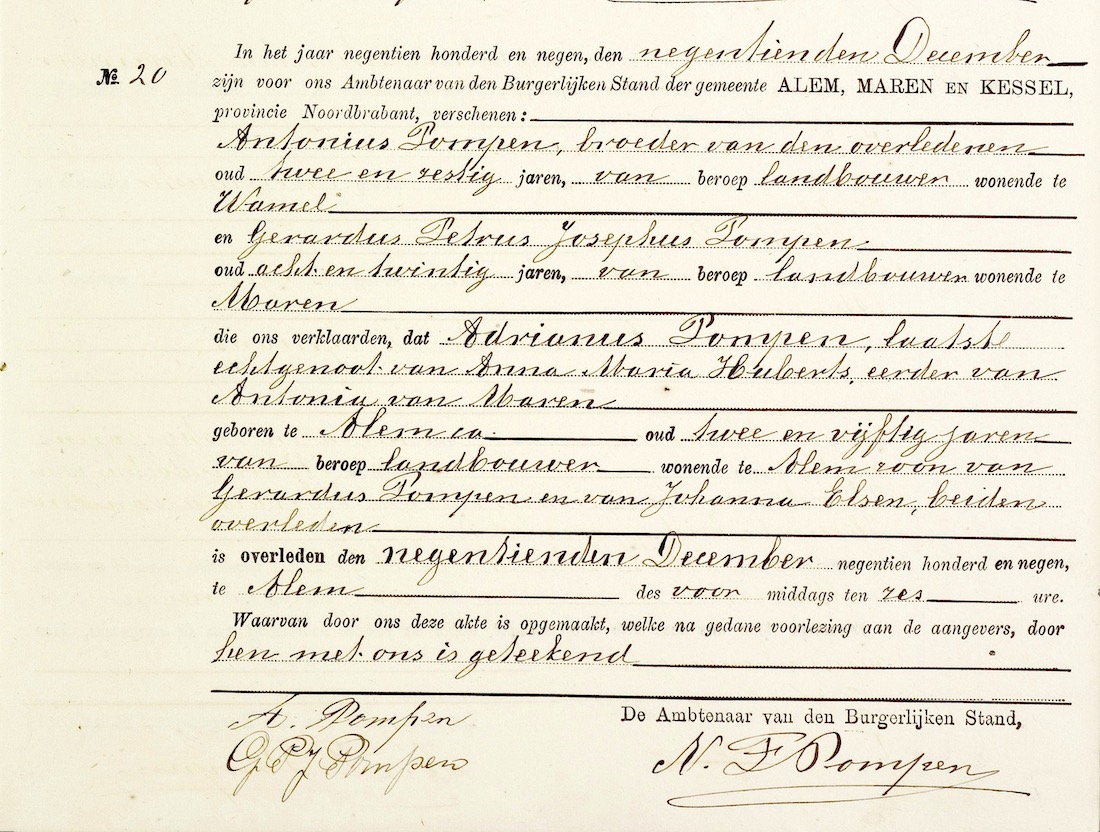 In het jaar negentien honderd en negen, den negentienden December
№ 20
zijn voor ons Ambtenaar van den Burgerlijken Stand der gemeente ALEM, MAREN EN KESSEL,
provincie Noordbrabant, verschenen:
Antonius Pompen, broeder van den overledenen
oud twee en zestig jaren, van beroep landbouwer wonende te
Wamel
en Gerardus Petrus Josephus Pompen
oud acht en twintig jaren, van beroep landbouwer wonende te
Maren
die ons verklaarden, dat Adrianus Pompen, laatst
echtgenoot van Anna Maria Huberts, eerder van
Antonia van Maren
geboren te Alem ca. oud twee en vijftig jaren
van beroep landbouwer wonende te Alem zoon van
Gerardus Pompen en van Johanna Elsen, beiden
overleden
is overleden den negentienden December negentien honderd en negen,
te Alem des voor middags ten zes ure.
Waarvan door ons deze akte is opgemaakt, welke na gedane voorlezing aan de aangevers, door
hen met ons is geteekend
A. Pompen
De Ambtenaar van den Burgerlijken Stand,
G P J Pompen
N. F Pompen